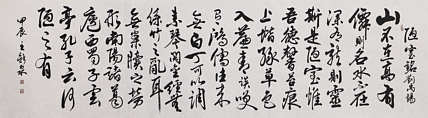 陋室銘劉禹錫
山不在高有
僊則名水不在
深有龍則靈
斯是陋室惟
吾德馨苔痕
上階緑草色
入簾青談笑
有鴻儒往來
無白丁可以調
素琴閱金經無
絲竹之亂耳
無案牘之勞
形南陽諸葛
廬西蜀子雲
亭孔子云何
陋之有
甲辰王